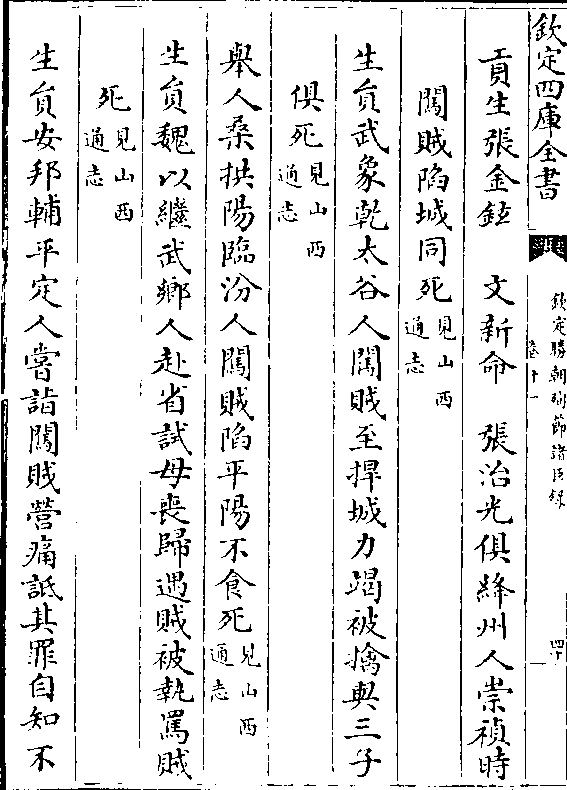 欽定四庫全書
欽定勝朝殉節諸臣録
卷十一
四十
貢生張金鉉 文新命 張治光俱絳州人崇禎時
闖賊陷城同死見山西通志
生員武象乾太谷人闖賊至捍城力竭被擒與三子
俱死見山西通志
舉人桑拱陽臨汾人闖賊陷平陽不食死見山西通志
生員魏以繼武鄉人赴省試母喪歸遇賊被執罵賊
死見山西通志
生員安邦輔平定人嘗詣闖賊營痛詆其罪自知不